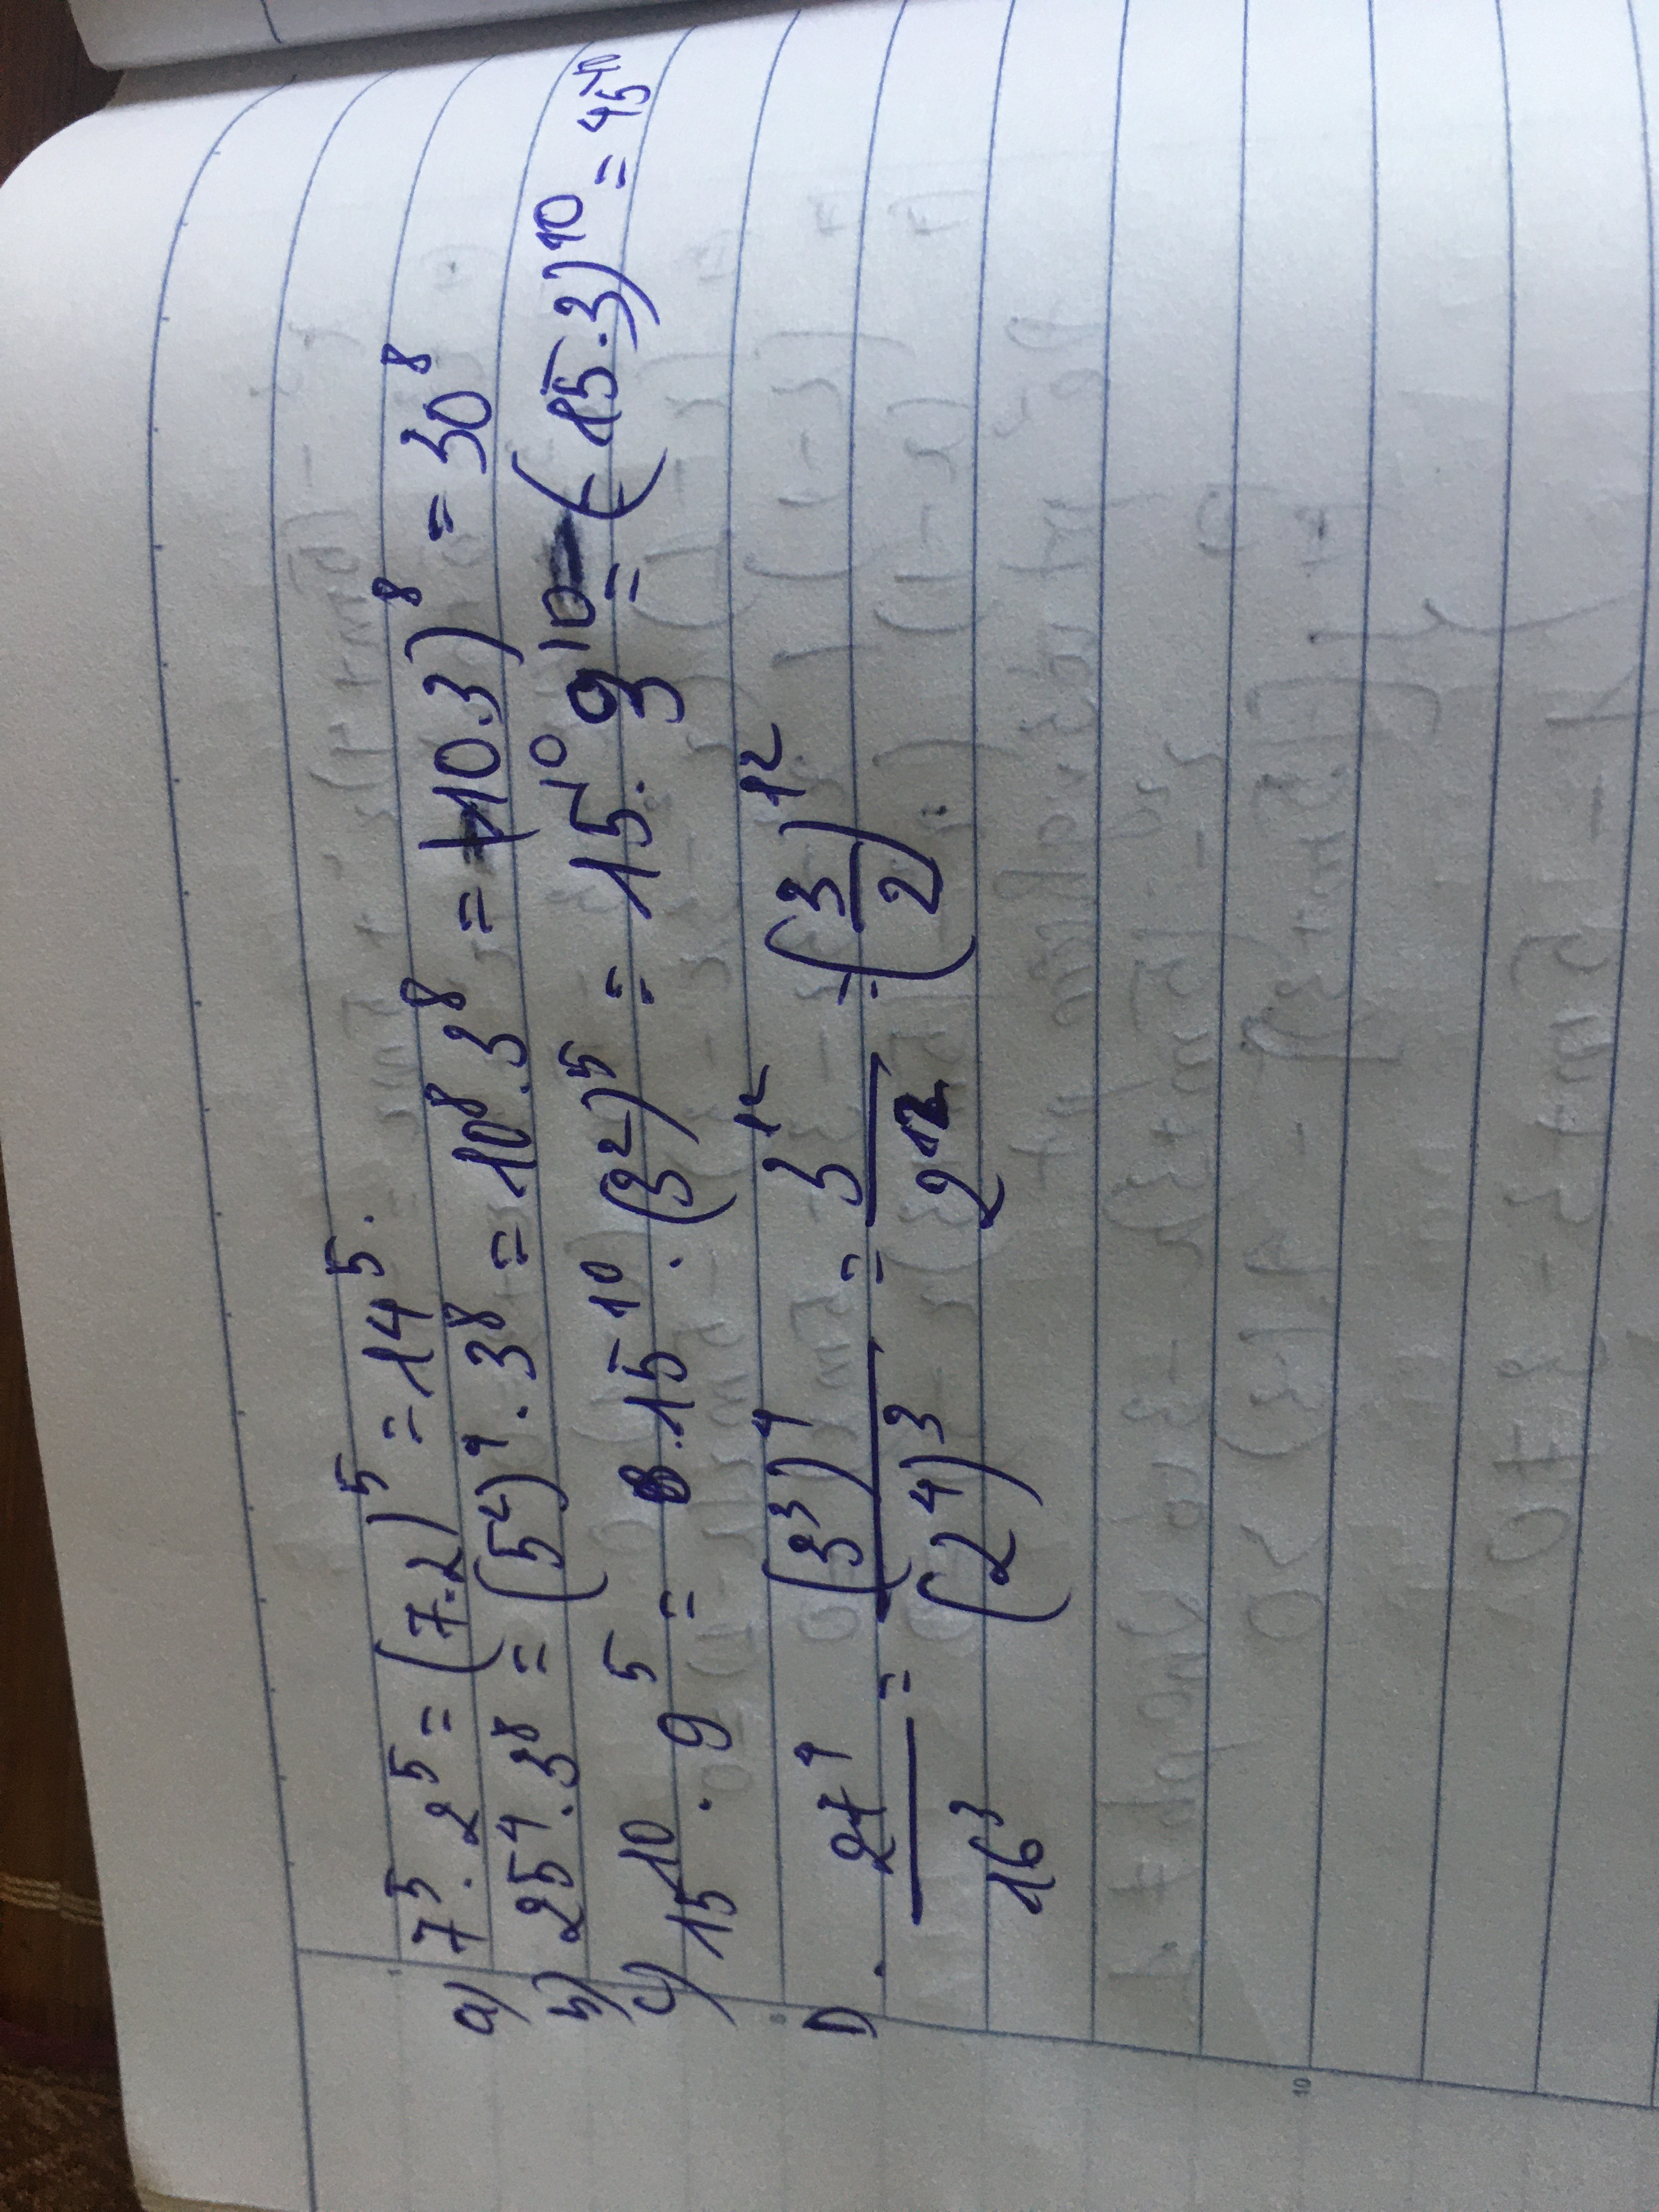 a) 7⁵ . 2⁵ = (7.2)⁵ = 14⁵.
b) 25⁴ . 3⁸ = (5²)⁴ . 3⁸ = 10⁸ . 3⁸ = (10.3)⁸ = 30⁸
c) 15¹⁰ . 9⁵ = .15¹⁰ . (3²)⁵ = 15¹⁰ . 3¹⁰ = (15.3)¹⁰ = 45¹⁰
D. 27⁴/16³ = (3³)⁴/(2⁴)³ = 3¹²/2¹² = (3/2)¹²